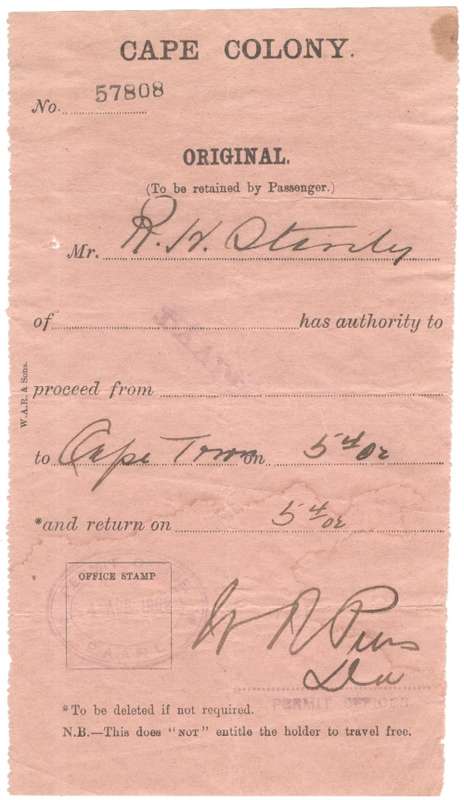 CAPE COLONY.
No. 57808
ORIGINAL.
(To be retained by Passenger.)
Mr. R. H. Stanley
of has authority to
PAARL
proceed from
W.A.R. & Sons.
to Cape Town on 5/4/02
*and return on 5/4/02
OFFICE STAMP
PAARL
W R Piers
PERMIT OFFICER
*To be deleted if not required.
N.B.—This does "NOT" entitle the holder to travel free.